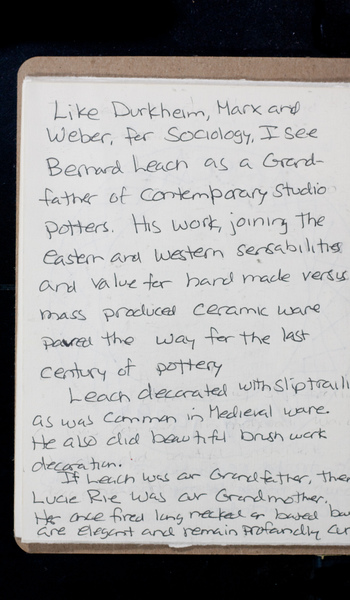 Like Durkheim, Marx and
Weber, for Sociology, I see
Bernard Leach as a Grand-
father of contemporary studio
potters. His work, joining the
eastern and western sensabilities
and value for hand made versus
mass produced ceramic ware
paved the way for the last
century of pottery
Leach decorated with sliptraili
as was common in Medieval ware.
He also did beautiful brush work
decoration.
If Leach was our Grandfather, then
Lucie Rie was our Grandmother.
Her once fired long necked or based
are elegant and remain profoundly